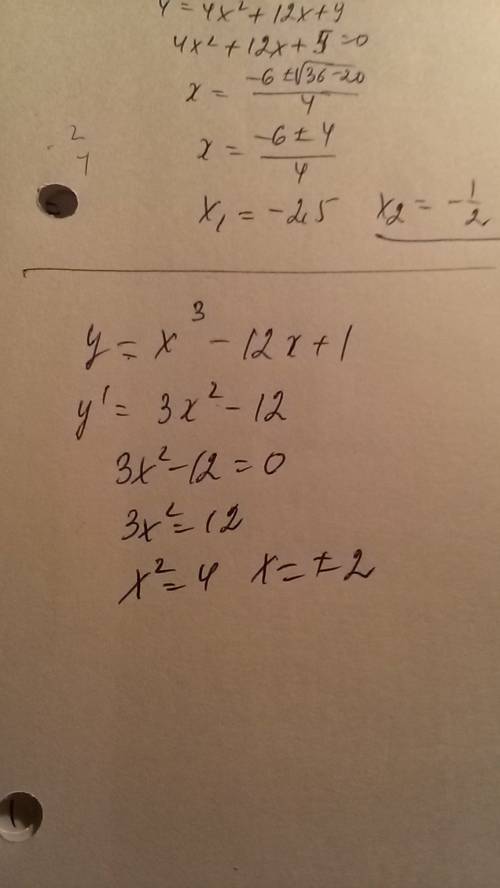 4 = 4x² + 12x + 9
4x² + 12x + 5 = 0
x = (-6 ± √(36-20))/4
x = (-6 ± 4)/4
x₁ = -2,5 x₂ = -1/2
y = x³ - 12x + 1
y' = 3x² - 12
3x² - 12 = 0
3x² = 12
x² = 4 x = ± 2